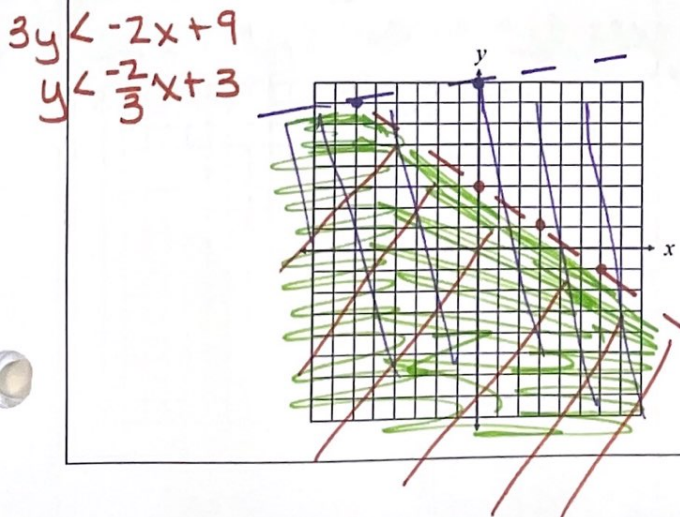 3y < -2x + 9
y < -2/3 x + 3
y
x